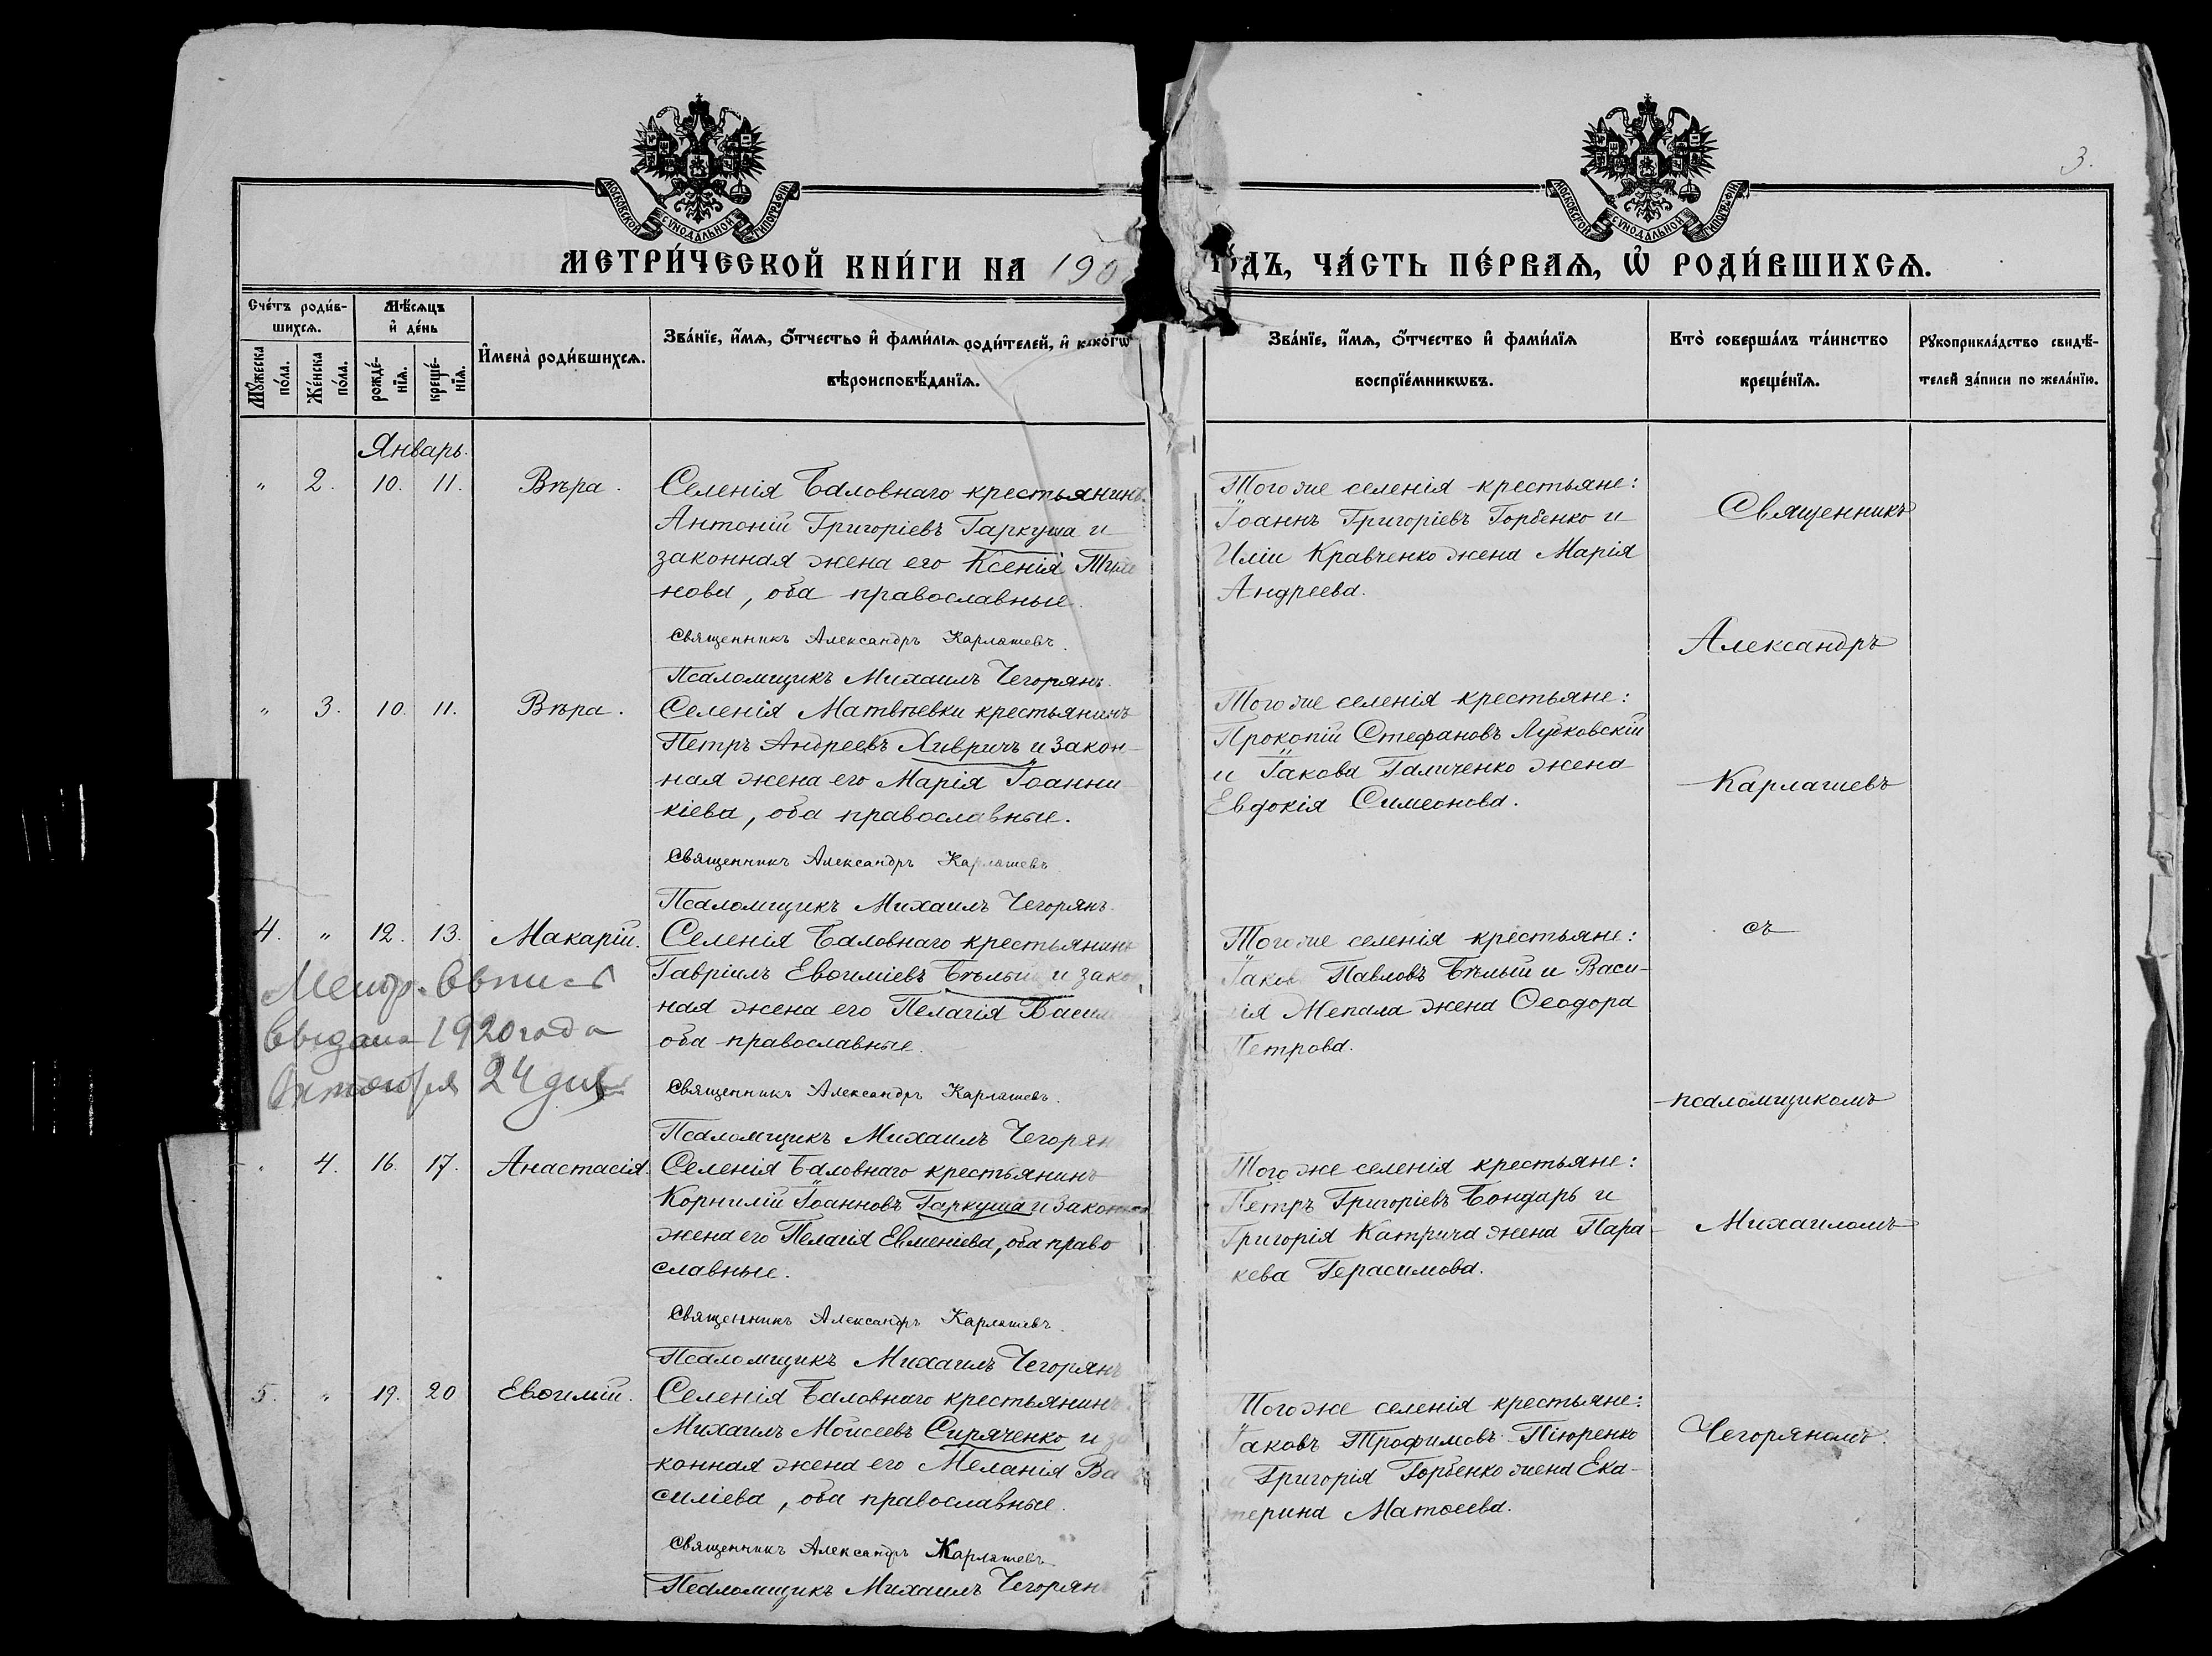 3.
МОСКОВСКОЙ СѴНОДАЛЬНОЙ ТИПОГРАФІИ
МОСКОВСКОЙ СѴНОДАЛЬНОЙ ТИПОГРАФІИ
МЕТРИ́ЧЕСКОЙ КНИ́ГИ НА 190
ГО́ДЪ, ЧА́СТЬ ПЕ́РВАѦ, Ѡ҆ РОДИ́ВШИХСѦ.
Сче́тъ роди́в-
шихсѧ.
Мѣ́сѧцъ
и҆ де́нь
Мꙋ́жеска
по́ла.
Же́нска
по́ла.
рожде́-
нїѧ.
креще́-
нїѧ.
И҆мена̀ роди́вшихсѧ.
Зва́нїе, и҆́мѧ, ѻ҆́тчество и҆ фами́лїѧ роди́телей, и҆ како́гѡ
вѣроисповѣ́данїѧ.
Зва́нїе, и҆́мѧ, ѻ҆́тчество и҆ фами́лїѧ
воспрїе́мникѡвъ.
Кто̀ соверша́лъ та́инство
креще́нїѧ.
Рꙋкоприкла́дство свидѣ́-
телей за́писи по жела́нїю.
Январь.
" 2. 10. 11. Вѣра.
Селенія Баловнаго крестьянинъ
Антоній Григоріевъ Гаркуша и
законная жена его Ксенія
нова, оба православные.
Священникъ Александръ Карлашевъ.
Псаломщикъ Михаилъ Чегорянъ.
Того же селенія крестьяне:
Іоаннъ Григоріевъ Горбенко и
Иліи Кравченко жена Марія
Андреева.
" 3. 10. 11. Вѣра.
Селенія Матвѣевки крестьянинъ
Петръ Андреевъ Хивричъ и закон-
ная жена его Марія Іоанни-
кіева, оба православные.
Священникъ Александръ Карлашевъ
Псаломщикъ Михаилъ Чегорянъ.
Того же селенія крестьяне:
Прокопій Стефановъ Лубковскій
и Іакова Галиченко жена
Евдокія Симеонова.
4. " 12. 13. Макарій.
Селенія Баловнаго крестьянинъ
Гавріилъ Евѳиміевъ Бѣлый и зако
ная жена его Пелагія Васил
оба православные.
Священникъ Александръ Карлашевъ.
Псаломщикъ Михаилъ Чегорян
Того же селенія крестьяне:
Іаковъ Павловъ Бѣлый и Васи-
лія Мепала жена Ѳеодора
Петрова.
Метр.
выдана 1920 года
Октября 24 дня
" 4. 16. 17. Анастасія.
Селенія Баловнаго крестьянинъ
Корнилій Іоанновъ Гаркуша и закон
жена его Пелагія Евменіева, оба право
славные.
Священникъ Александръ Карлашевъ.
Псаломщикъ Михаилъ Чегорянъ
Того же селенія крестьяне:
Петръ Григоріевъ Бондарь и
Григорія Катрича жена Пара-
кева Герасимова.
5. " 19. 20 Евѳимій.
Селенія Баловнаго крестьянинъ
Михаилъ Моисеевъ Сиряченко и за
конная жена его Меланія Ва
силіева, оба православные.
Священникъ Александръ Карлашевъ
Псаломщикъ Михаилъ Чегорян
Того же селенія крестьяне:
Іаковъ Трофимовъ Піюренко
и Григорія Горбенко жена Ека-
терина Матѳеева.
Священникъ
Александръ
Карлашевъ
съ
псаломщикомъ
Михаиломъ
Чегоряномъ.